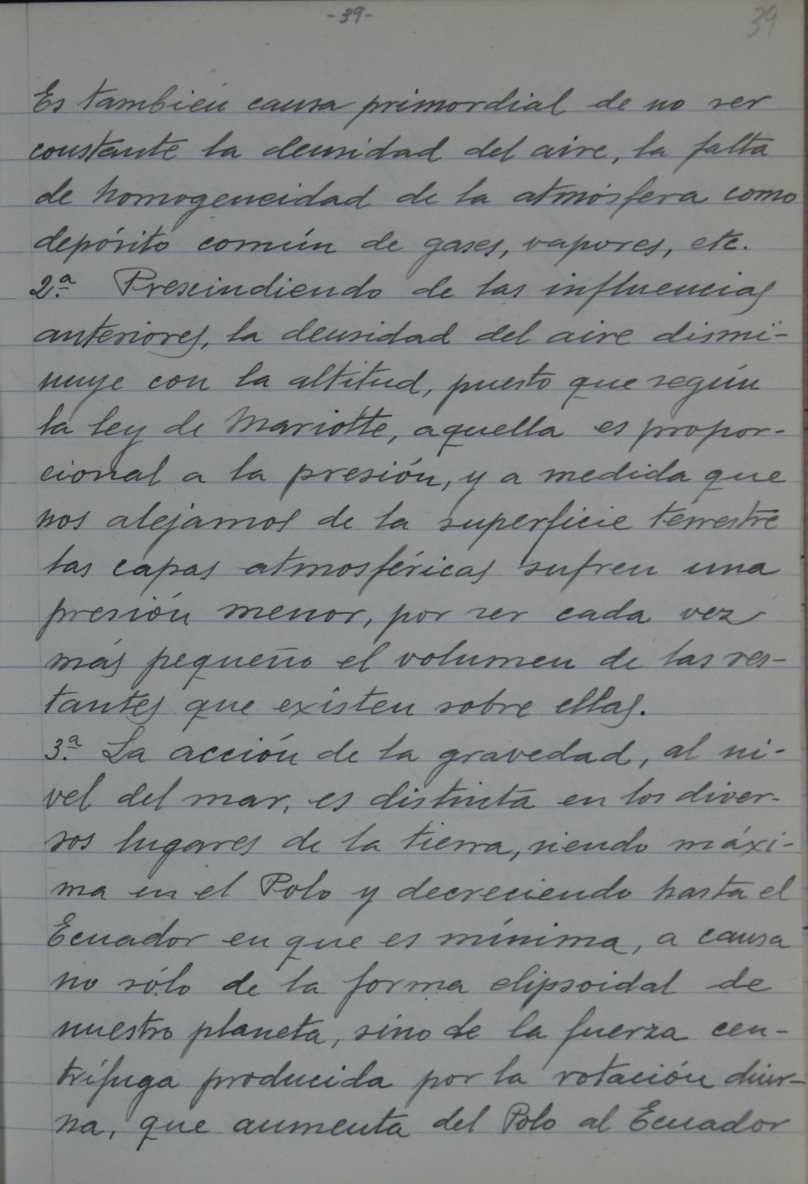 -39-
39
Es también causa primordial de no ser
constante la densidad del aire, la falta
de homogeneidad de la atmósfera como
depósito común de gases, vapores, etc.
2.ª Prescindiendo de las influencias
anteriores, la densidad del aire dismi-
nuye con la altitud, puesto que según
la ley de Mariotte, aquella es propor-
cional a la presión, y a medida que
nos alejamos de la superficie terrestre
las capas atmosféricas sufren una
presión menor, por ser cada vez
más pequeño el volumen de las res-
tantes que existen sobre ellas.
3.ª La acción de la gravedad, al ni-
vel del mar, es distinta en los diver-
sos lugares de la tierra, siendo máxi-
ma en el Polo y decreciendo hasta el
Ecuador en que es mínima, a causa
no sólo de la forma elipsoidal de
nuestro planeta, sino de la fuerza cen-
trífuga producida por la rotación diur-
na, que aumenta del Polo al Ecuador